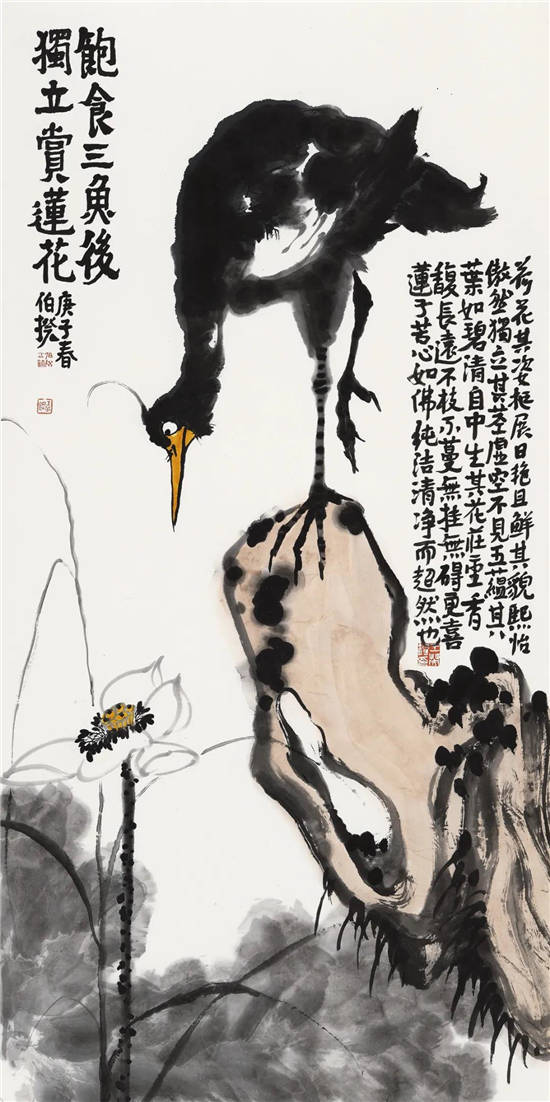 飽食三魚後
獨立賞蓮花
庚子春
伯揆
荷花其姿挺展日艳且鮮其貌熙怡
傲然獨立其莖虛空不見五蘊其
葉如碧清自中生其花莊重香
馥長遠不枝不蔓無挂無碍更喜
蓮子苦心如佛純洁清净而超然也